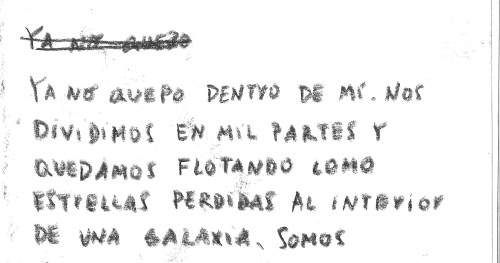 YA NO QUEPO
YA NO QUEPO DENTRO DE MÍ. NOS
DIVIDIMOS EN MIL PARTES Y
QUEDAMOS FLOTANDO COMO
ESTRELLAS PERDIDAS AL INTERIOR
DE UNA GALAXIA, SOMOS